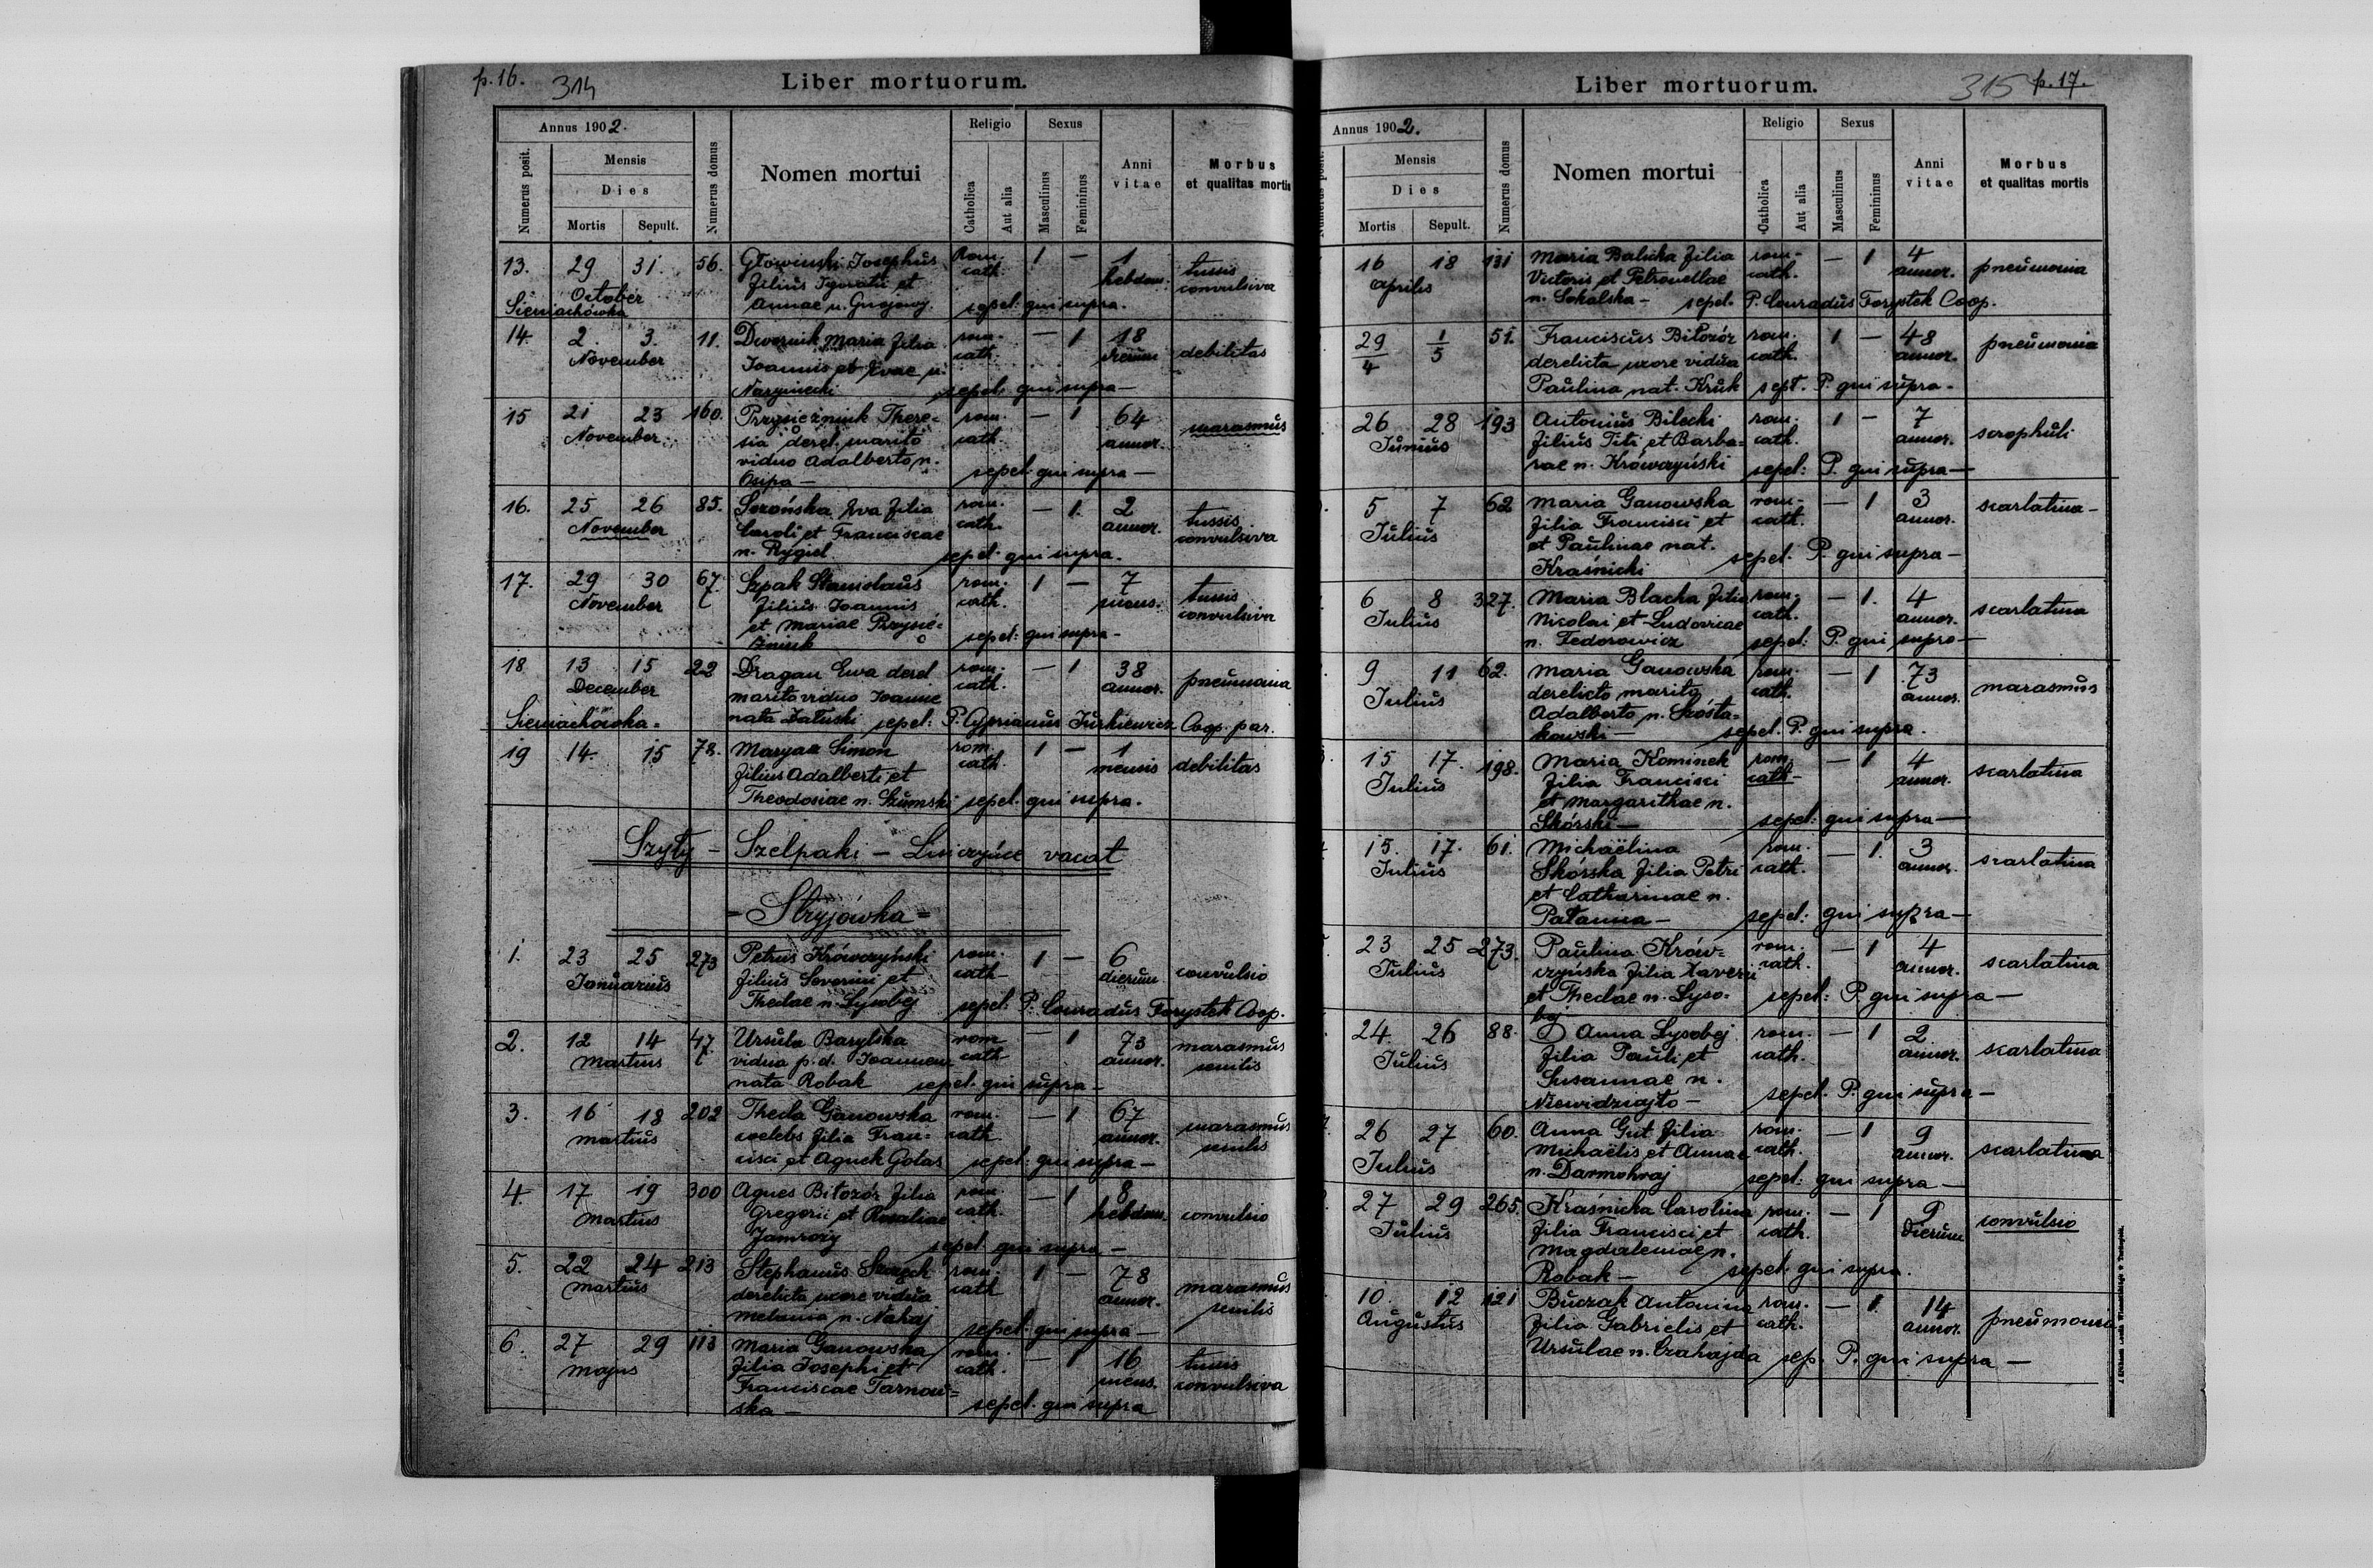 p. 16. 314
Liber mortuorum.
Annus 1902.
Numerus posit.
Mensis
Dies
Mortis Sepult.
Numerus domus
Nomen mortui
Religio
Catholica
Aut alia
Sexus
Masculinus
Femininus
Anni vitae
Morbus
et qualitas mortis
13. 29 31. 56. Głowinski Josephus Rom. 1 — 1 tussis
October filius Ignatii et cath. hebdom. convulsiva
Sieniachówka Annae n. sepel. qui supra.
14. 2. 3. 11. Dwornik Maria filia rom. — 1 18 debilitas
November Joannis et Evae n. cath. dierum
sepel. qui supra —
15 21 23 160. Przysiężniuk There- rom. — 1 64 marasmus
November sia derel. marito cath. annor.
viduo Adalberto n. sepel. qui supra —
Osipa —
16. 25 26 85. Ewa filia rom. — 1. 2 tussis
November Caroli et Franciscae cath. annor. convulsiva
n. Rygiel sepel. qui supra.
17. 29 30 67. Szpak Stanislaus rom. 1 — 7 tussis
November filius Joannis cath. mens. convulsiva
et Mariae Przysię-
żniuk sepel: qui supra —
18 13 15 22 Dragan Ewa derel rom. — 1 38 pneumonia
December marito viduo Joanne cath. annor.
Sieniachówka. nata Załuski sepel: P. Cyprianus Jurkiewicz Coop. par.
19 14. 15 78. Maryan Simon rom. 1 — 1 debilitas
filius Adalberti et cath. mensis
Theodosiae n. Szumski sepel. qui supra.
Szyły — Szelpaki — Lisiczyńce vacat
= Stryjówka =
1. 23 25 273 Petrus Krówczyński rom. 1 — 6 convulsio
Januarius filius Severini et cath. dierum
Theclae n. Lysobej sepel. P. Conradus Forystek Coop.
2. 12 14 47. Ursula Barylska rom — 1 73 marasmus
Martius vidua p. d. Joannem cath annor. senilis
nata Robak sepel. qui supra —
3. 16 18 202 Thecla Ganowska rom. — 1 67 marasmus
Martius coelebs filia Fran- cath annor. senilis
cisci et Agnek Golas sepel: qui supra —
4. 17 19 300 Agnes Biłozór filia rom. — 1 8 convulsio
Martius Gregorii et Rosaliae cath. hebdom.
Jamrozy sepel qui supra —
5. 22 24 213 Stephanus rom. 1 — 78 marasmus
Martius derelicta uxore vidua cath annor. senilis
Melania n. Nahaj sepel. qui supra —
6. 27 29 113 Maria Ganowska rom. — 1 16 tussis
Majus filia Josephi et cath. mens. convulsiva
Franciscae Tarnow-
ska — sepel. qui supra
315 p. 17.
Liber mortuorum.
Annus 1902.
Numerus posit.
Mensis
Dies
Mortis Sepult.
Numerus domus
Nomen mortui
Religio
Catholica
Aut alia
Sexus
Masculinus
Femininus
Anni vitae
Morbus
et qualitas mortis
16 18 131 Maria Balicka filia rom- — 1 4 pneumonia
Aprilis Victoris et Petronellae cath. annor.
n. Sokalska — sepel. P. Conradus Forystek Coop.
29/4 1/5 51. Franciscus Biłozór rom. 1 — 48 pneumonia
derelicta uxore vidua cath. annor.
Paulina nat. Kruk sept. P. qui supra —
26 28 193 Antonius Bilecki rom. 1 — 7 scrophuli
Junius filius Titi et Barba- cath. annor.
rae n. Krówczyński sepel: P. qui supra —
5 7 62 Maria Ganowska rom- — 1 3 scarlatina —
Julius filia Francisci et cath. annor.
et Paulinae nat.
Kraśnicki sepel. P. qui supra —
6 8 327. Maria Blacha filia rom- — 1. 4 scarlatina
Julius Nicolai et Ludovicae cath. annor.
n. Fedorowicz sepel: P. qui supra —
9 11 62. Maria Ganowska rom. — 1 73 marasmus
Julius derelicto marito cath. annor.
Adalberto n. Szósta-
kowski — sepel. P. qui supra.
15 17. 198. Maria Kominek rom. — 1 4 scarlatina
Julius filia Francisci cath- annor.
et Margarithae n.
Skórski — sepel: qui supra —
15. 17. 61. Michaëlina rom. — 1. 3 scarlatina
Julius Skórska filia Petri cath. annor.
et Catharinae n.
Patanna — sepel: qui supra —
23 25 273. Paulina Krów- rom. — 1 4 scarlatina
Julius czyńska filia Xaverii cath. annor.
et Theclae n. Lyso- sepel: P. qui supra —
bej
24. 26 88. Anna Lysobej rom. — 1 2. scarlatina
Julius filia Pauli et cath. annor.
Susannae n.
Niewidzajto — sepel. P. qui supra —
26 27 60. Anna Gut filia rom. — 1 9 scarlatina
Julius Michaëlis et Annae cath. annor.
n. Darmohraj sepel: qui supra —
27 29 265. Kraśnicka Carolina rom. — 1 9 convulsio
Julius filia Francisci et cath. dierum
Magdalenae n.
Robak — sepel. qui supra.
10. 12 121 Buczak Antonina rom. — 1. 14 pneumonia
Augustus filia Gabrielis et cath. annor.
Ursulae n. Czahajda sep. P. qui supra —